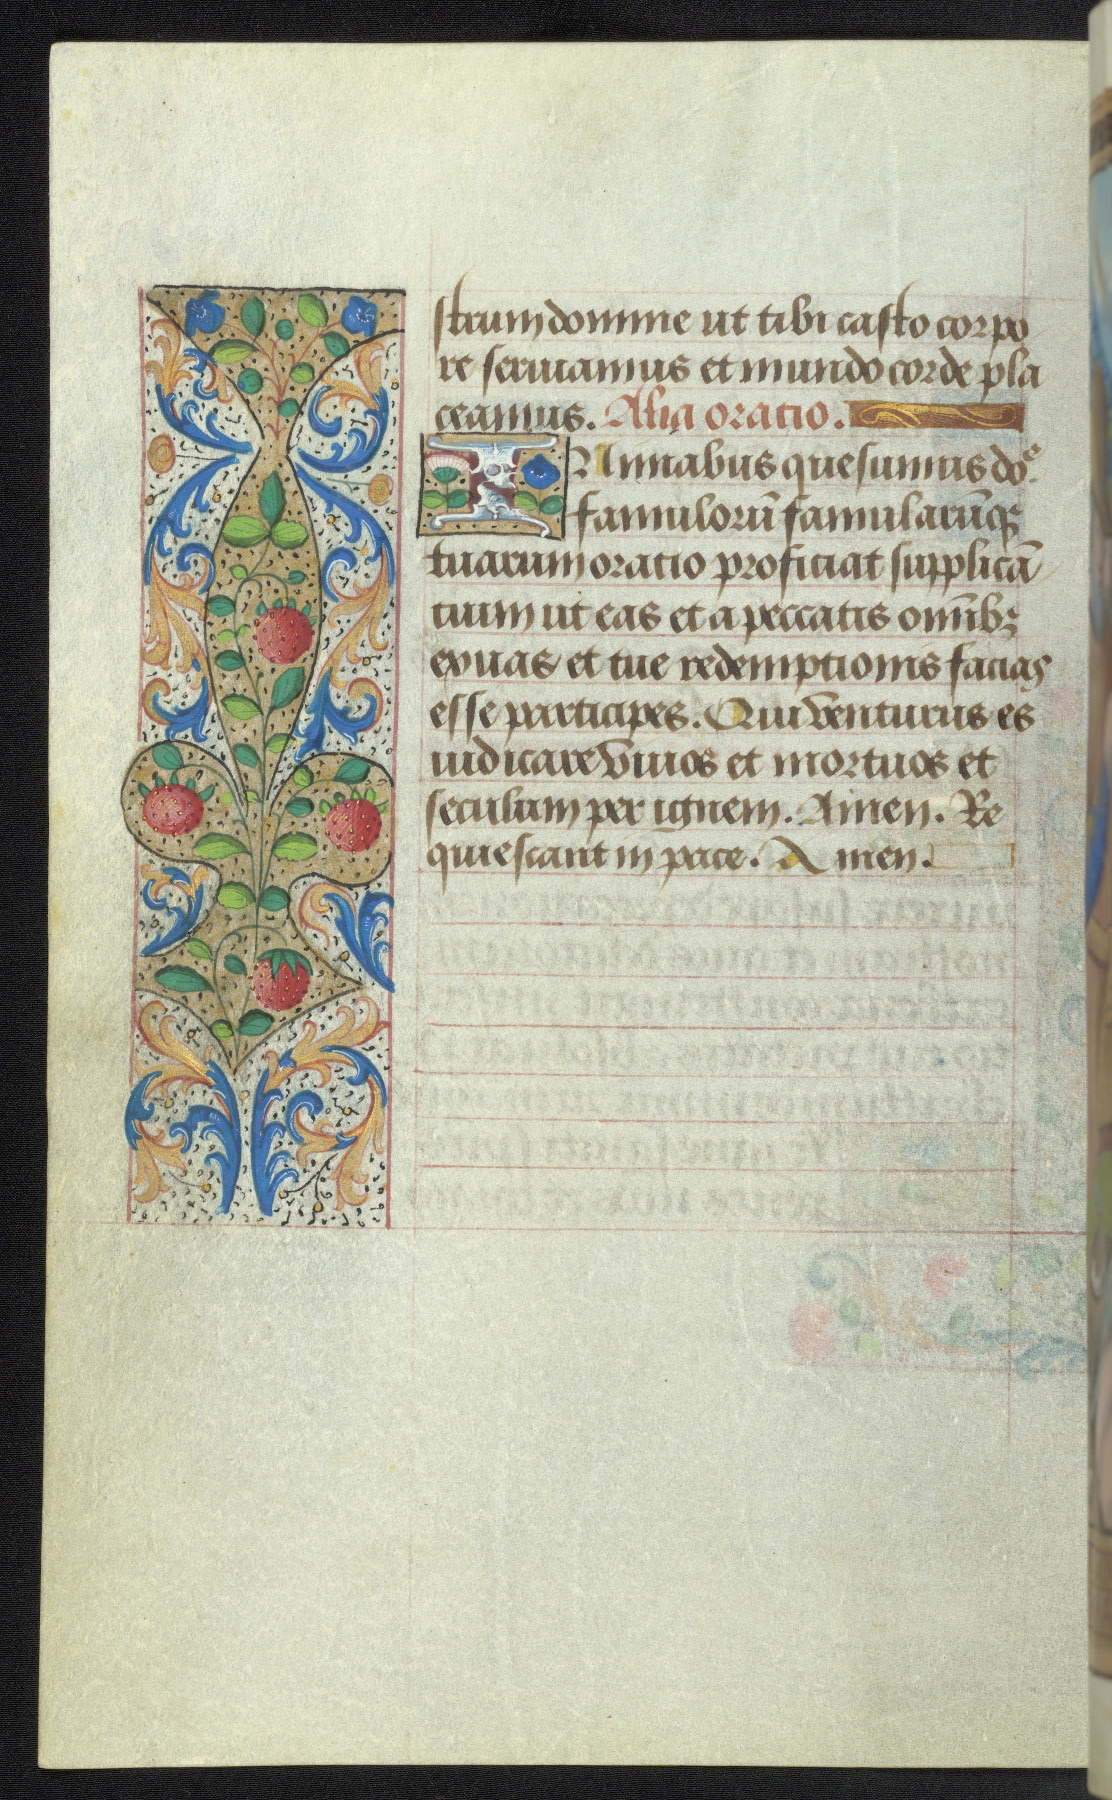 strum domine ut tibi casto corpo
re seruiamus et mundo corde pla
ceamus. Alia oratio.
INimabus quesumus doe.
famulorū famularūqꝫ
tuarum oratio proficiat supplicā
tium ut eas et a peccatis omībꝫ
exuas et tue redemptionis facias
esse participes. Qui venturus es
iudicare viuos et mortuos et
seculum per ignem. Amen. Re
quiescant in pace. Amen.